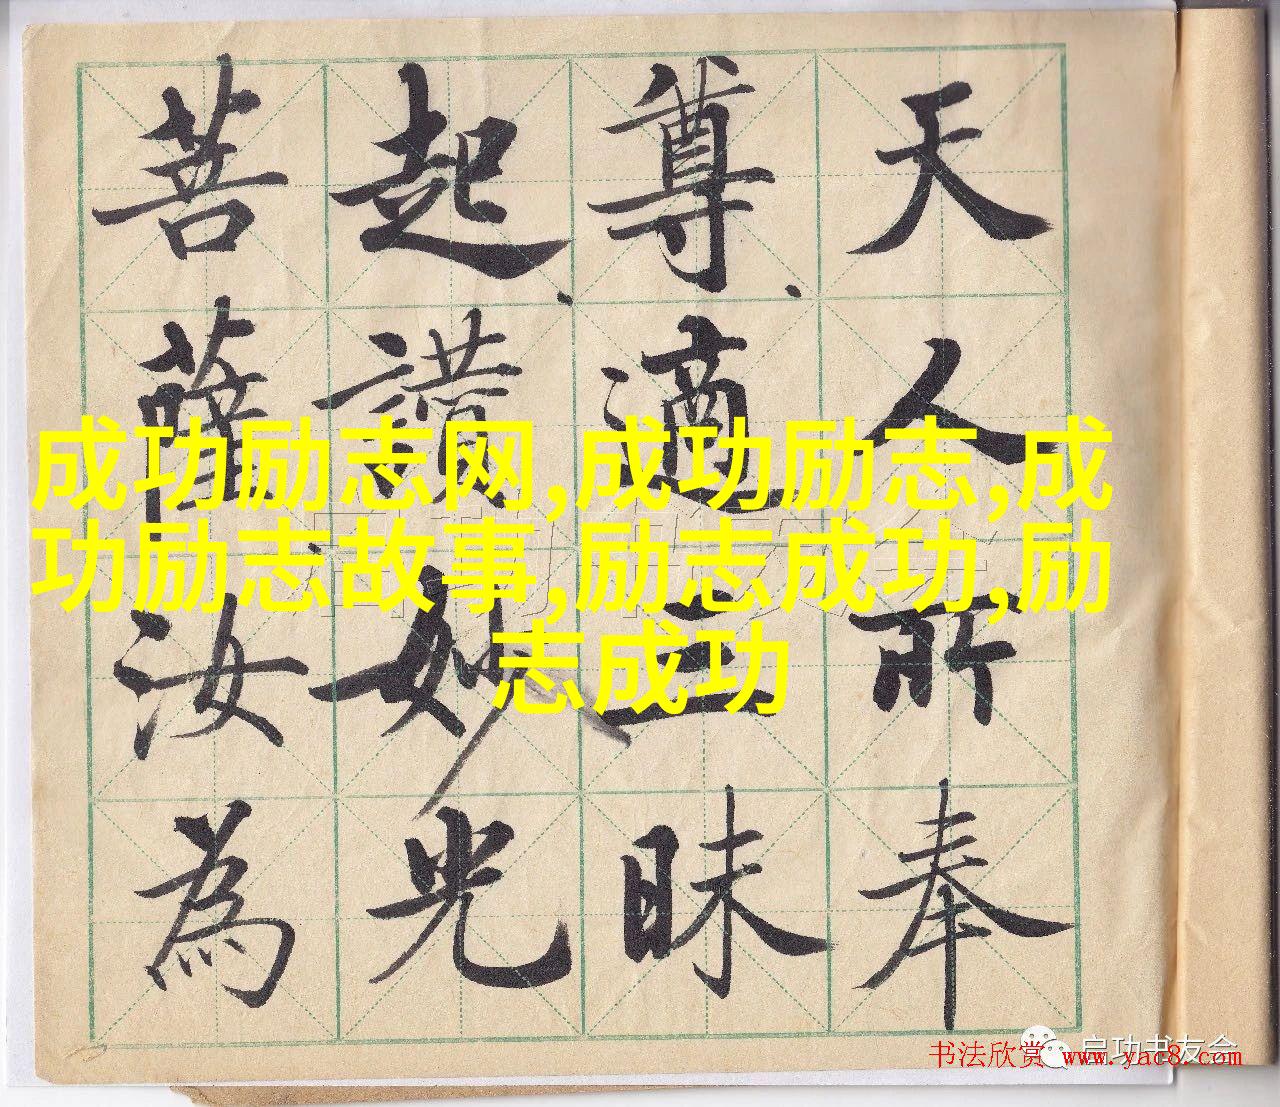 天人所奉
尊適三昧
起讚妙光
菩薩汝為
成功励志网,成功励志,成
功励志故事,励志成功,励
志成功
启功书友会
书法欣赏 www.yac8.com